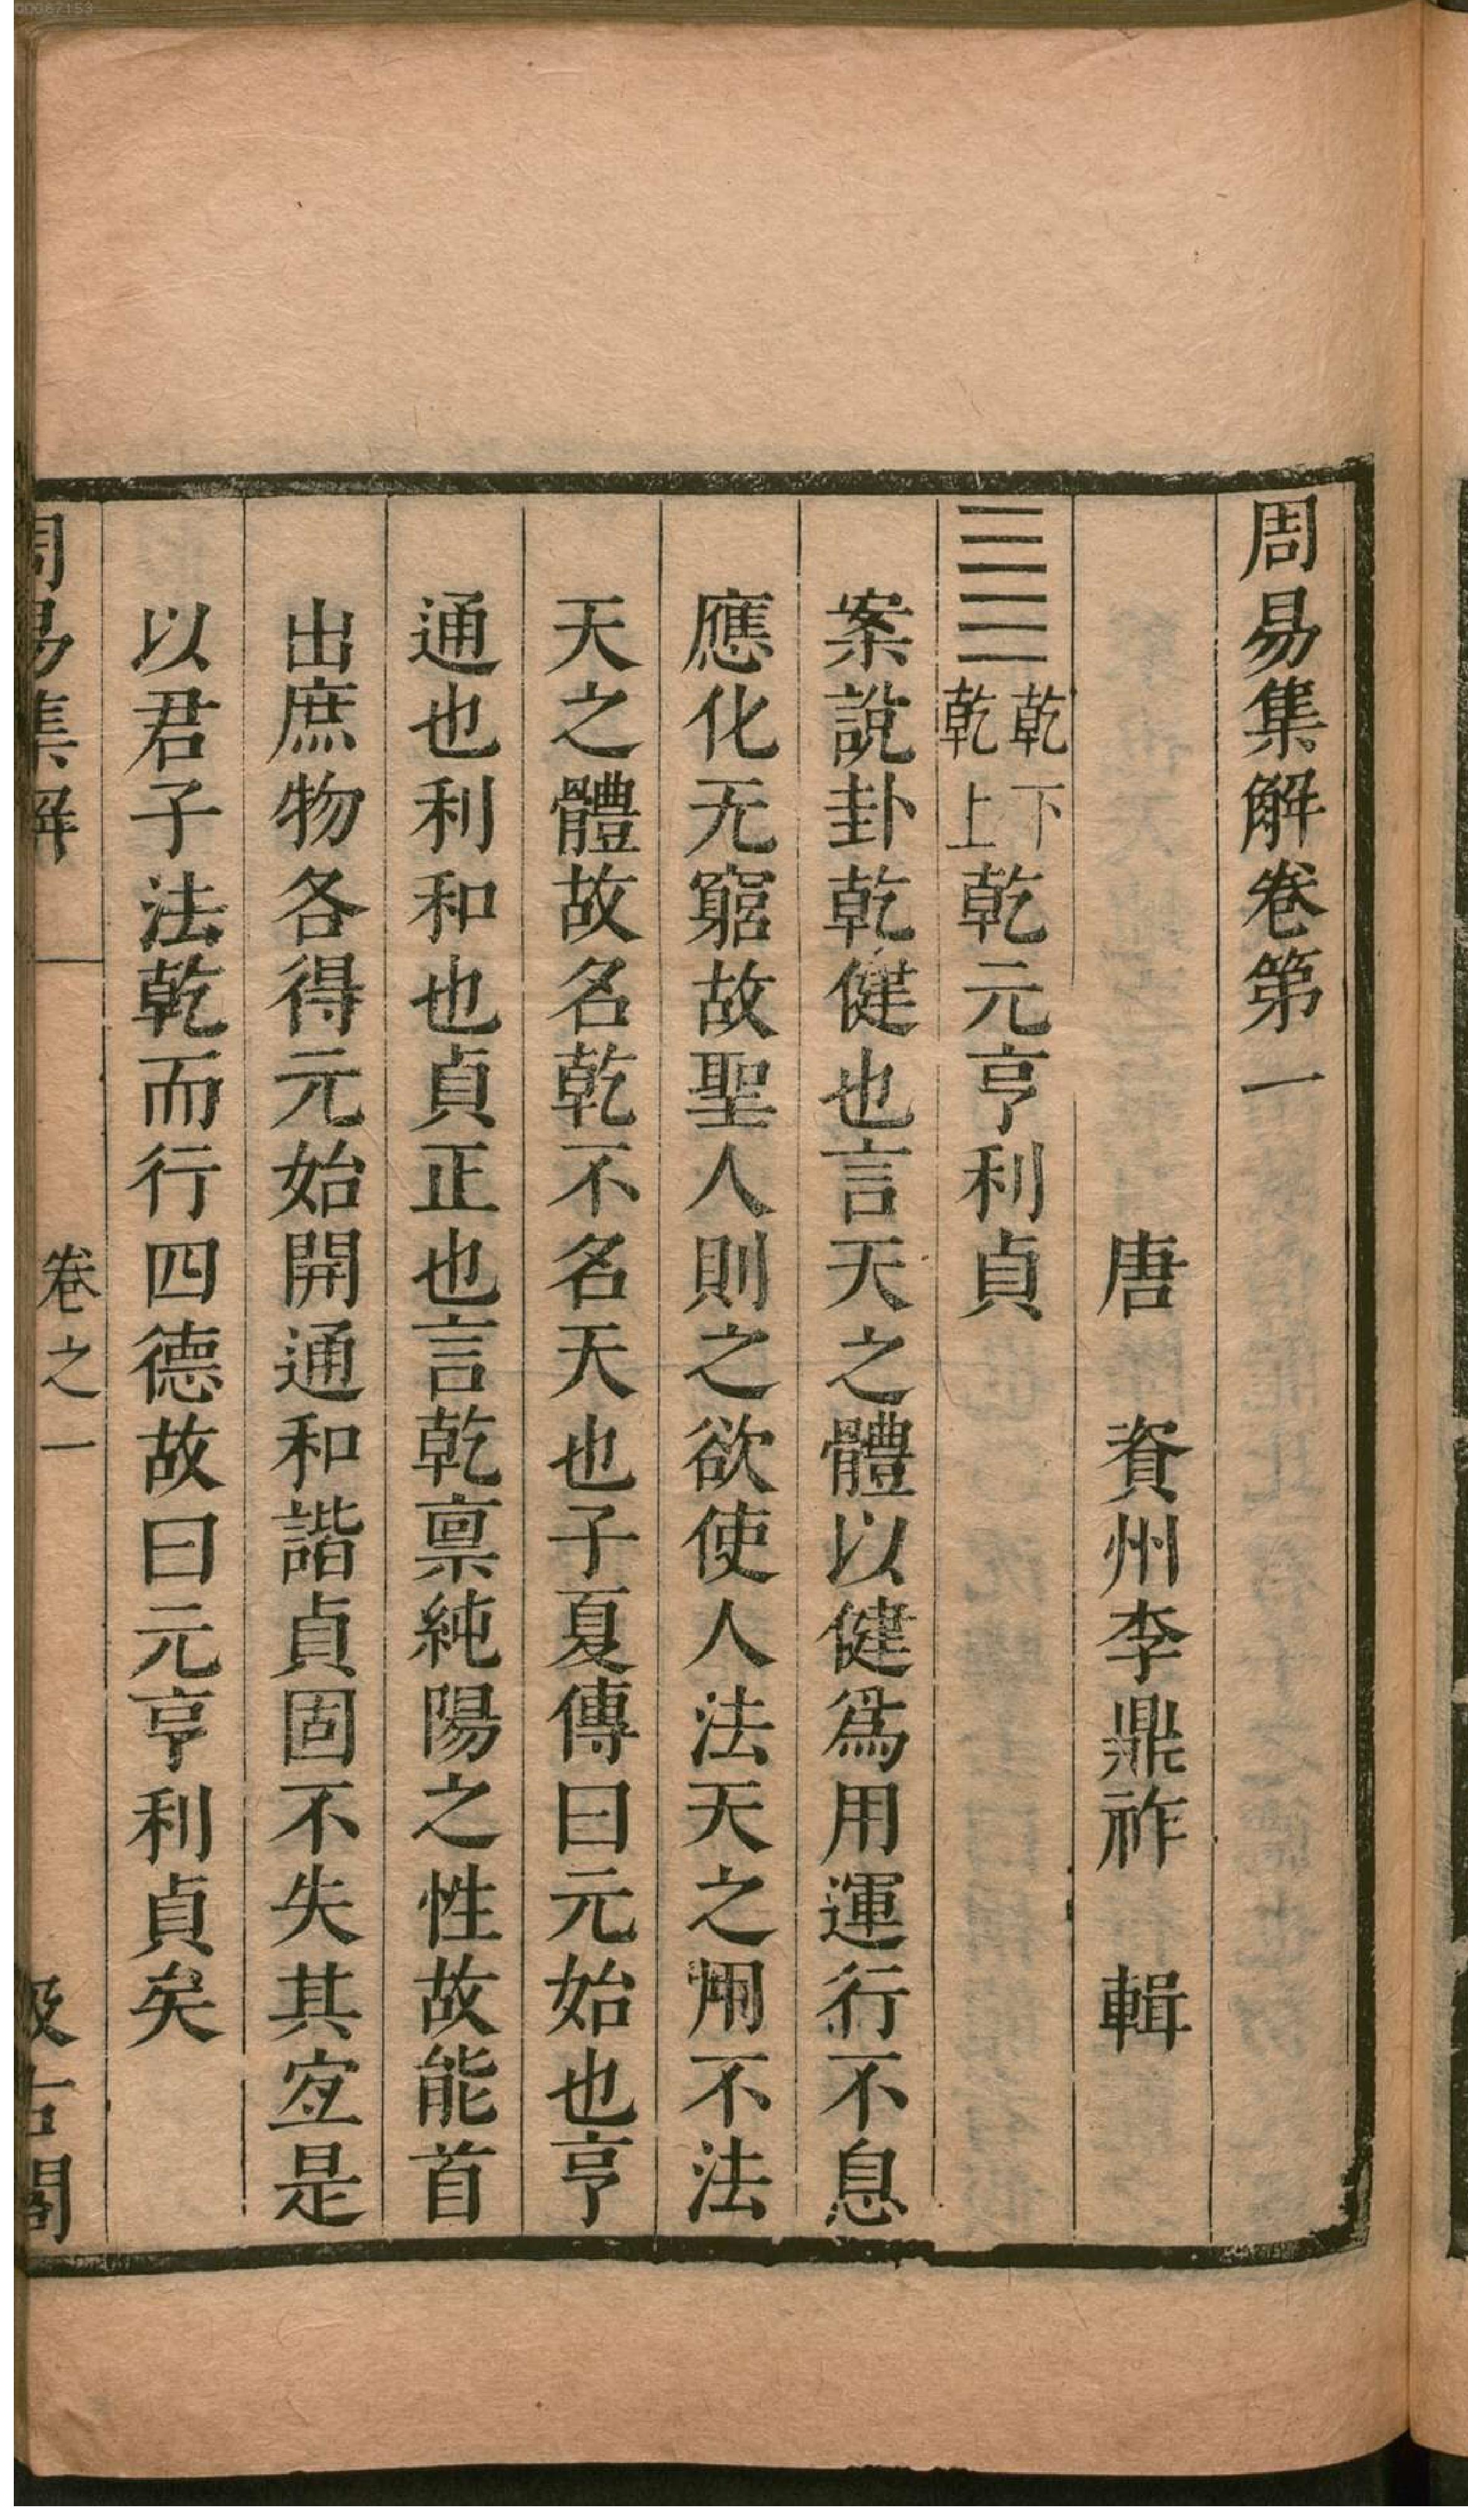 周易集解卷第一
唐　資州李鼎祚　輯
䷀乾下乾上乾元亨利貞
案說卦乾健也言天之體以健爲用運行不息
應化无窮故聖人則之欲使人法天之用不法
天之體故名乾不名天也子夏傳曰元始也亨
通也利和也貞正也言乾禀純陽之性故能首
出庶物各得元始開通和諧貞固不失其宐是
以君子法乾而行四德故曰元亨利貞矣
周易集解　卷之一　汲古閣
00087153